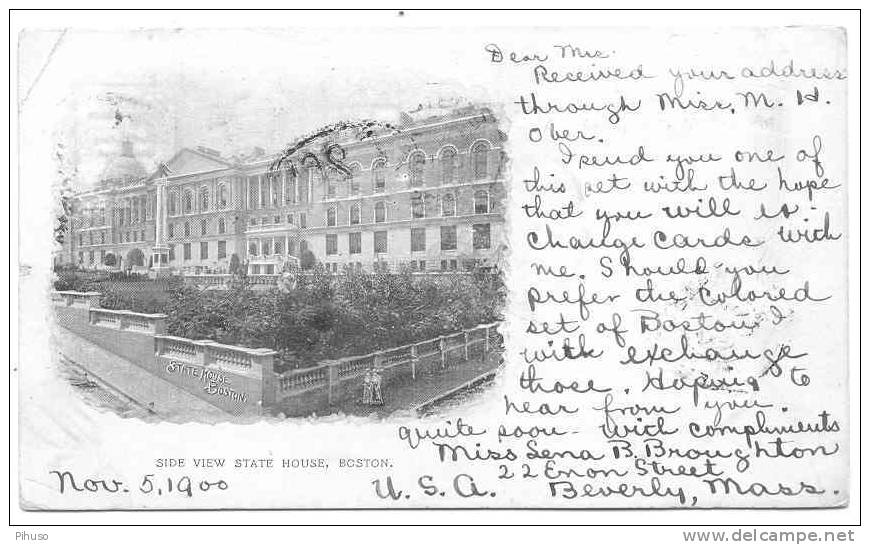 Dear Mrs.
Received your address
through Miss, M. H.
Ober.
I send you one of
this set with the hope
that you will ex-
change cards with
me. Should you
prefer the Colored
set of Boston I
will exchange
those. Hoping to
hear from you
quite soon - with compliments
Miss Lena B. Broughton
22 Enon Street
Beverly, Mass.
U. S. A.
Nov. 5, 1900
STATE HOUSE
BOSTON
SIDE VIEW STATE HOUSE, BOSTON.
Pihuso
www.delcampe.net